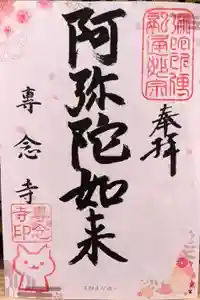 奉拝
阿弥陀如来
專念寺
專念
寺印